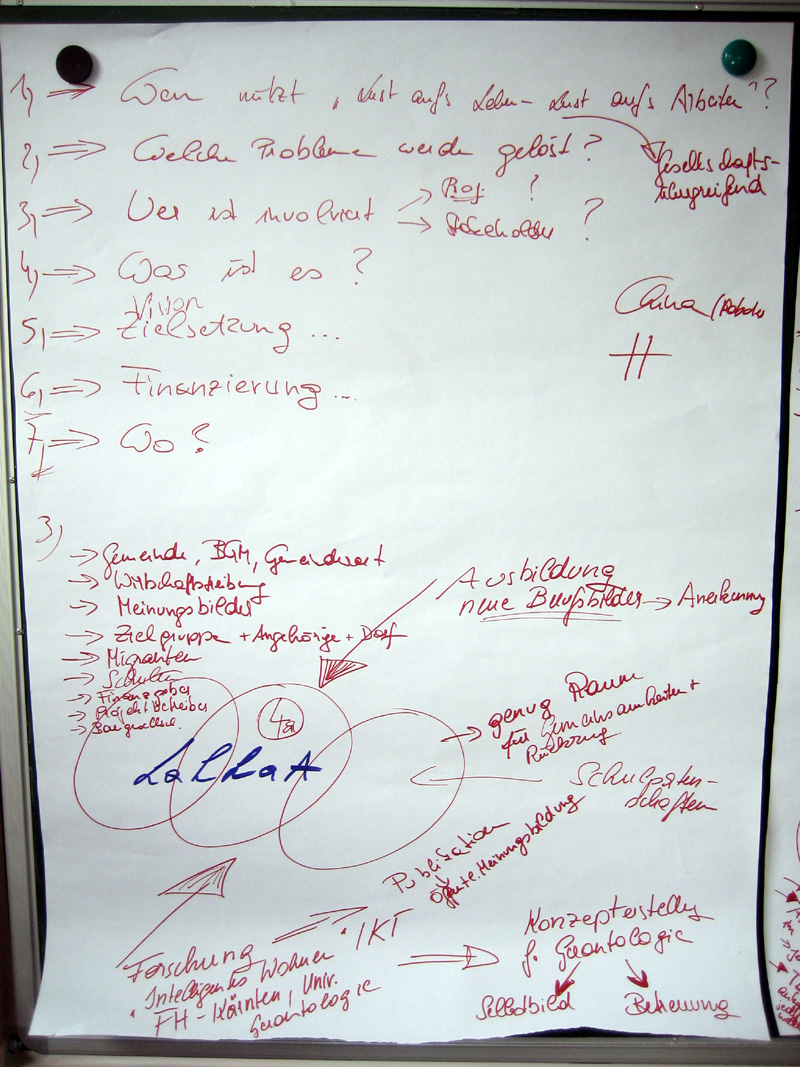 1, ⇒ Wem nützt „Lust aufs Leben – Lust aufs Arbeiten"?
Gesellschafts-
übergreifend
2, ⇒ Welche Probleme werden gelöst?
3, ⇒ Wer ist involviert → Proj. ?
→ Stakeholder ?
4, ⇒ Was ist es?
Vision
5, ⇒ Zielsetzung ...
China / Roboter
#
6, ⇒ Finanzierung ...
7, ⇒ Wo?
3)
→ Gemeinde, BGM, Gemeinderat
→ Wirtschaftstreibende
→ Meinungsbilder
→ Zielgruppe + Angehörige + Dorf
→ Migranten
→ Schulen
→ Finanzgeber
→ Projektbetreiber
→ Baugesellsch.
Ausbildung
neue Berufsbilder → Anerkennung
LaLLaA
→ genug Raum
für Gemeinsamkeiten +
Rückzug
Schulpaten-
schaften
Publikation
öffentl. Meinungsbildung
Forschung ⇒ • IKT
• Intelligentes Wohnen
• FH-Kärnten, Univ.
Gerontologie
⇒ Konzepterstellg
f. Gerontologie
Selbstbild
Betreuung